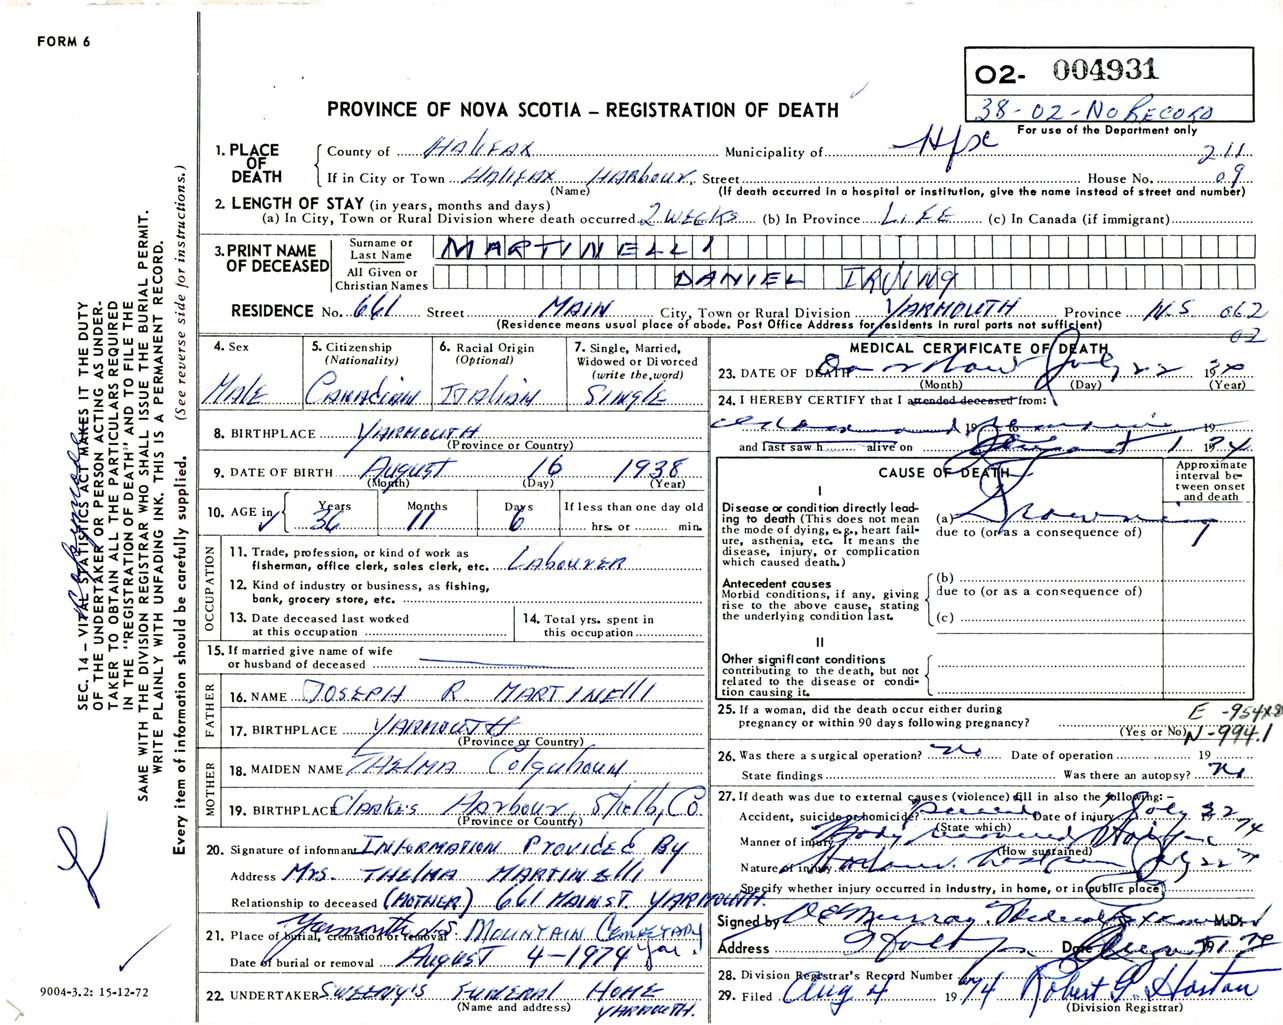 FORM 6
O2- 004931
38-02-NO RECORD
For use of the Department only
PROVINCE OF NOVA SCOTIA – REGISTRATION OF DEATH
1. PLACE OF DEATH
County of HALIFAX Municipality of Hfx 211
If in City or Town HALIFAX HARBOUR. Street House No. 09
(Name) (If death occurred in a hospital or institution, give the name instead of street and number)
2. LENGTH OF STAY (in years, months and days)
(a) In City, Town or Rural Division where death occurred 2 WEEKS (b) In Province LIFE (c) In Canada (if immigrant)
3. PRINT NAME OF DECEASED
Surname or Last Name MARTINELLI
All Given or Christian Names DANIEL IRVING
RESIDENCE No. 661 Street MAIN City, Town or Rural Division YARMOUTH Province N.S. 062
(Residence means usual place of abode. Post Office Address for residents in rural parts not sufficient) 02
4. Sex
Male
5. Citizenship (Nationality)
Canadian
6. Racial Origin (Optional)
Italian
7. Single, Married, Widowed or Divorced (write the word)
Single
8. BIRTHPLACE YARMOUTH
(Province or Country)
9. DATE OF BIRTH August 16 1938
(Month) (Day) (Year)
10. AGE in Years Months Days If less than one day old
36 11 6 hrs. or min.
OCCUPATION
11. Trade, profession, or kind of work as
fisherman, office clerk, sales clerk, etc. Labourer
12. Kind of industry or business, as fishing,
bank, grocery store, etc.
13. Date deceased last worked
at this occupation
14. Total yrs. spent in
this occupation
15. If married give name of wife
or husband of deceased
FATHER
16. NAME JOSEPH R. MARTINELLI
17. BIRTHPLACE YARMOUTH
(Province or Country)
MOTHER
18. MAIDEN NAME THELMA Colquhoun
19. BIRTHPLACE Clarke's Harbour, Shelb, Co.
(Province or Country)
20. Signature of informant INFORMATION PROVIDED By
Address Mrs. THELMA MARTINELLI
Relationship to deceased (MOTHER) 661 MAIN ST. YARMOUTH.
21. Place of burial, cremation or removal Yarmouth N.S. MOUNTAIN CEMETARY
Date of burial or removal August 4-1974 Yar.
22. UNDERTAKER SWEENY'S FUNERAL HOME
(Name and address) YARMOUTH.
MEDICAL CERTIFICATE OF DEATH
23. DATE OF DEATH On or About July 22 1974
(Month) (Day) (Year)
24. I HEREBY CERTIFY that I attended deceased from:
19 19
and last saw h alive on August 1 1974
CAUSE OF DEATH
Approximate interval between onset and death
I
Disease or condition directly leading to death (This does not mean the mode of dying, e.g., heart failure, asthenia, etc. It means the disease, injury, or complication which caused death.)
(a) Drowning
due to (or as a consequence of)
Antecedent causes
Morbid conditions, if any, giving rise to the above cause, stating the underlying condition last.
(b)
due to (or as a consequence of)
(c)
II
Other significant conditions
contributing to the death, but not related to the disease or condition causing it.
25. If a woman, did the death occur either during
pregnancy or within 90 days following pregnancy?
(Yes or No)
E -954x8
N-994.1
26. Was there a surgical operation? No Date of operation 19
State findings Was there an autopsy? No
27. If death was due to external causes (violence) fill in also the following: –
Accident, suicide or homicide? Date of injury July 22 1974
(State which)
Manner of injury Body recovered
(How sustained)
Nature of injury July 22
Specify whether injury occurred in industry, in home, or in public place
Signed by Murray Medical Examiner M.D.
Address Hfx Date August 1 1974
28. Division Registrar's Record Number
29. Filed Aug 4 1974 Robert G. Horton
(Division Registrar)
SEC. 14 – VITAL STATISTICS ACT MAKES IT THE DUTY
OF THE UNDERTAKER OR PERSON ACTING AS UNDER-
TAKER TO OBTAIN ALL THE PARTICULARS REQUIRED
IN THE "REGISTRATION OF DEATH" AND TO FILE THE
SAME WITH THE DIVISION REGISTRAR WHO SHALL ISSUE THE BURIAL PERMIT.
WRITE PLAINLY WITH UNFADING INK. THIS IS A PERMANENT RECORD.
Every item of information should be carefully supplied. (See reverse side for instructions.)
9004-3.2: 15-12-72